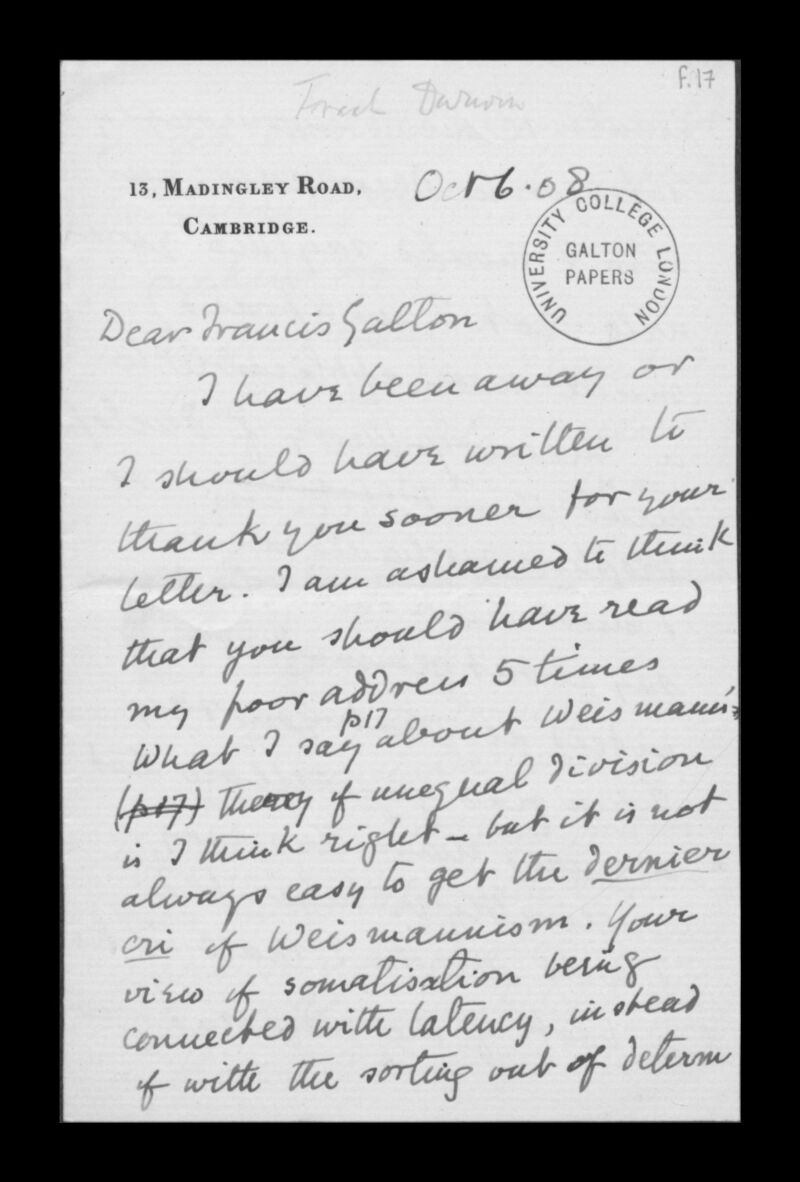 f.17
Darwin
13, MADINGLEY ROAD,
CAMBRIDGE.
Oct 6.08
UNIVERSITY COLLEGE LONDON
GALTON
PAPERS
Dear Francis Galton
I have been away or
I should have written to
thank you sooner for your
letter. I am ashamed to think
that you should have read
my poor address 5 times
What I say p17 about Weismann's
(p17) theory of unequal division
is I think right – but it is not
always easy to get the dernier
cri of Weismannism. Your
view of somatisation being
connected with latency, instead
of with the sorting out of determ